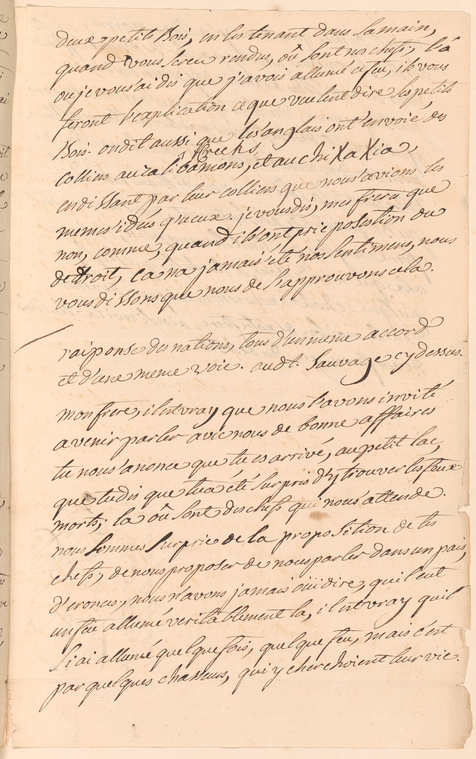 deux petits Bois, en les tenant dans sa main,
quand vous serez rendus, où sont nos chefs, la
ou je vous ai dis que j'avois allumé ce feu, ils vous
feront l'explication ce que veulent dire ses petits
Bois. on dit aussi que les anglais ont envoié des
colliers aux alibamons, et au chiKaKia,
en disant par leur colliers que nous avions les
memes idées qu'eux. je vous dis, mes freres que
non, comme, quand ils ont pris posestion du
detroit, ca na jamais eté nos sentimens, nous
vous dissons que nous desapprouvons cela.
raiponse des nations, tous d'un meme accord
et d'une meme voie. audt. Sauvage cy dessus.
mon frere, il est vray que nous t'avons invité
a venir parler avec nous de bonne affaires
tu nous anonce que tu es arrivé, au petit lac,
que tu dis que tu a eté surpris d'y trouver les feux
morts; la où sont des chefs qui nous attende.
nous sommes surpris de la proposition de tes
chefs, de nous proposer de nous parler dans un pais
d'eronce, nous n'avons jamais oüi dire, qu'il eut
un feu allumé veritablement la, il est vray qu'il
s'i ai allumé quelque fois, quelque feu, mais c'est
par quelques chasseurs, qui y cherchoient leur vie.